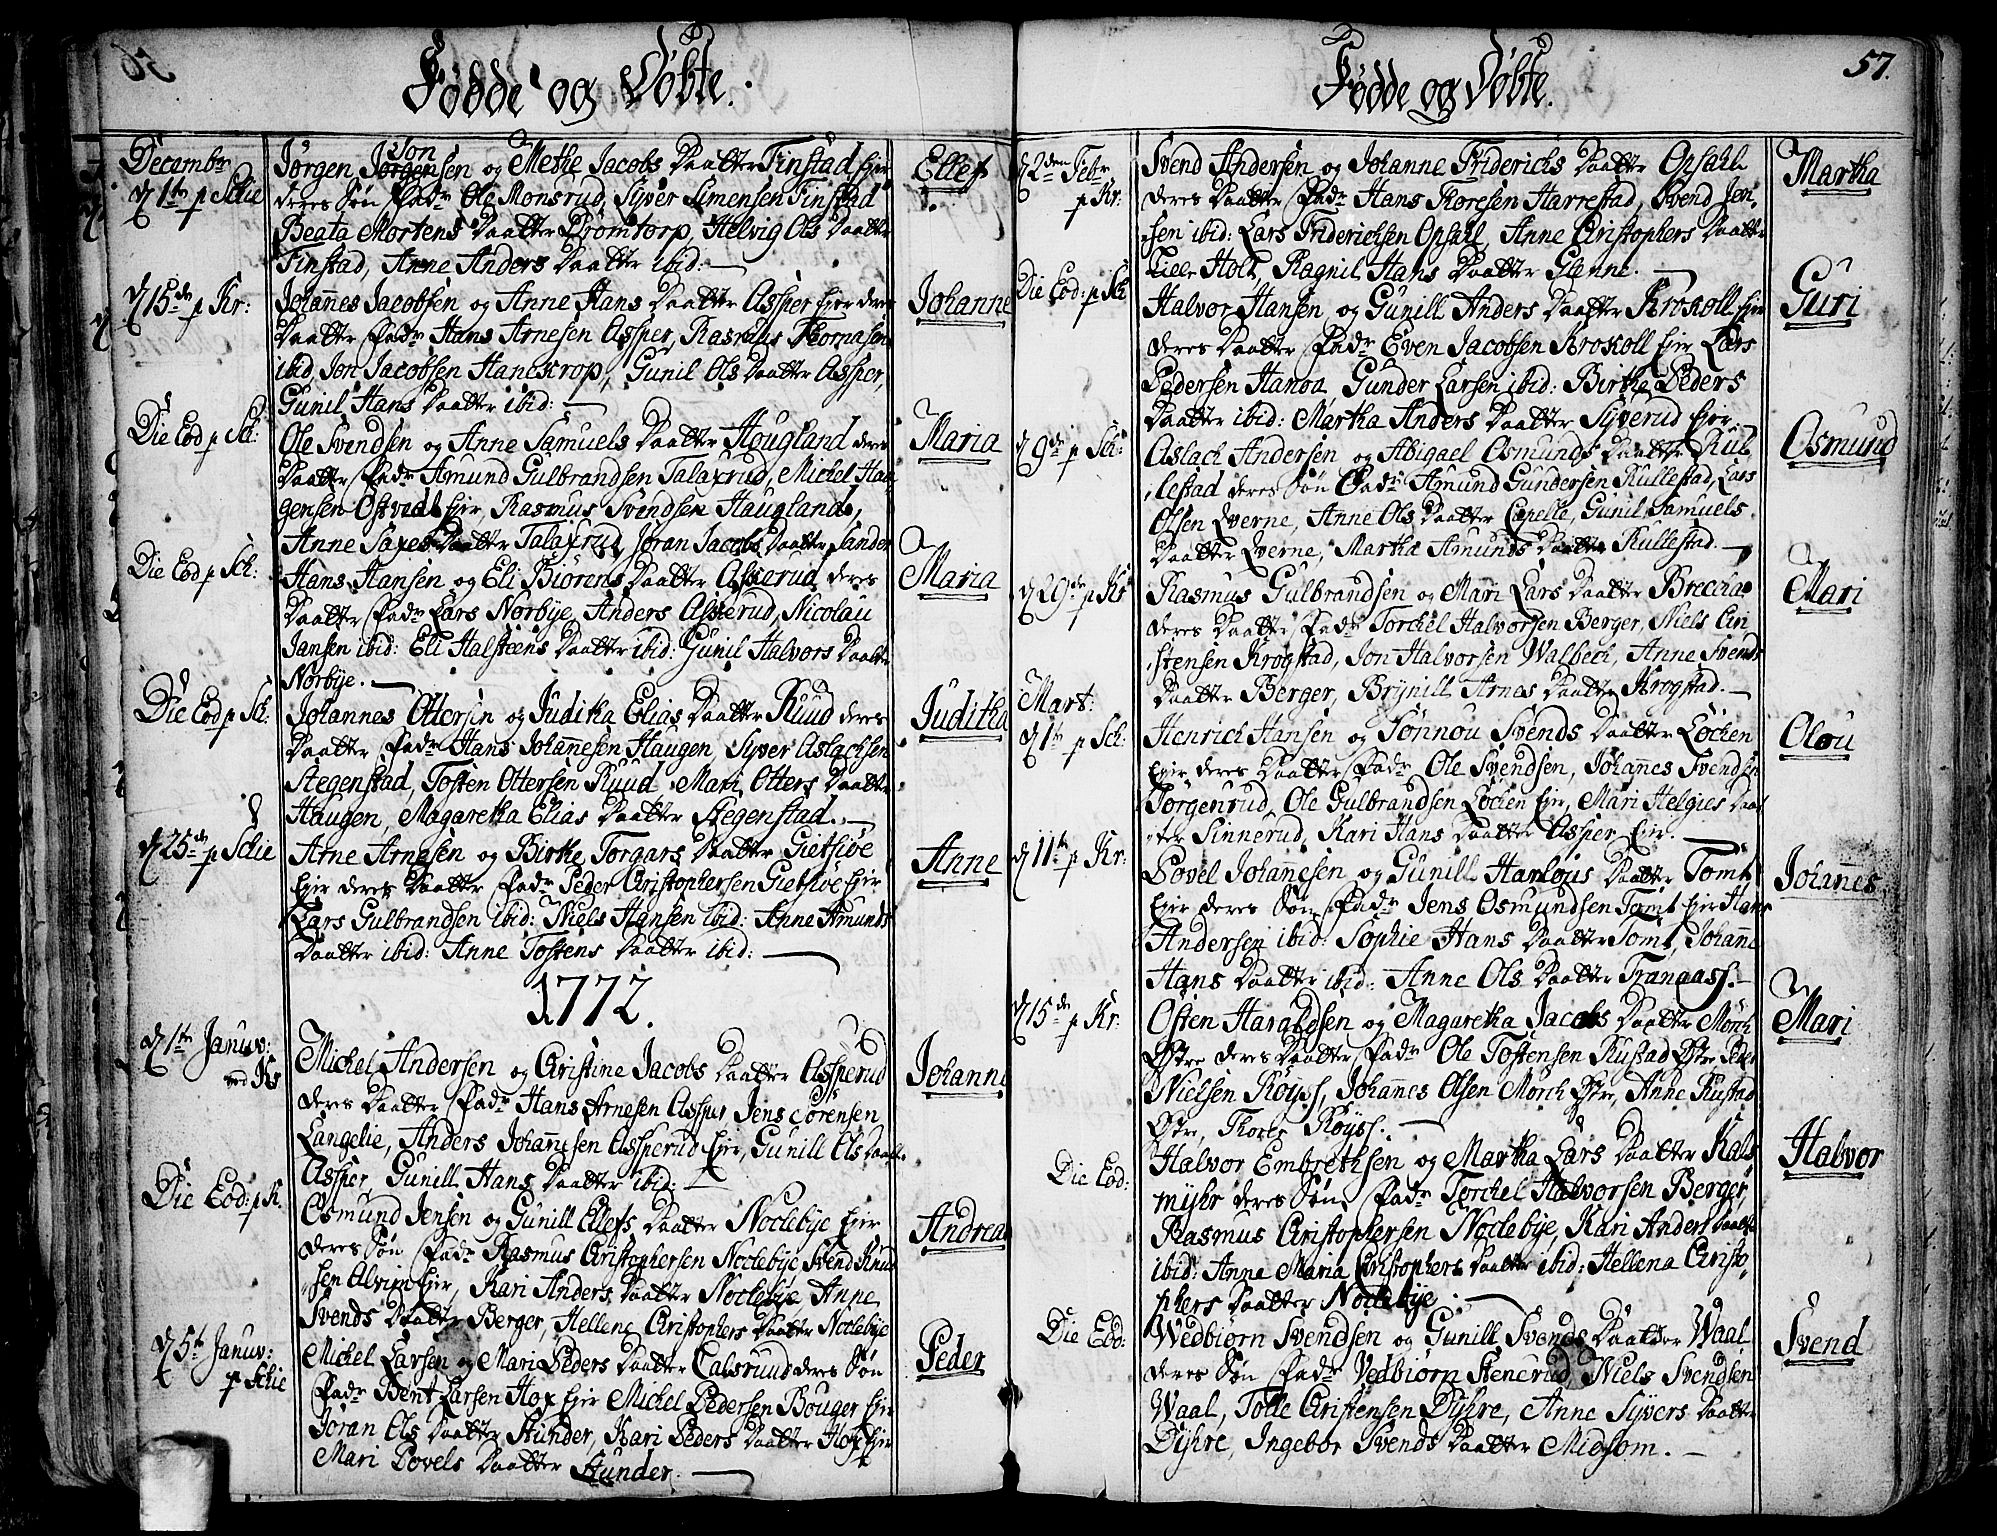 56
Fødde og Døbte.
Decembr
d 1te p Skie
Jørgen Jørgensen Jon og Methe Jacobs Daatter Finstad hjer
deres Søn Fadr Ole Monsrud, Syver Simensen Finstad
Beata Mortens Daatter Drømtorp, Helvig Ols Daatter
Finstad, Anne Anders Daatter ibid:
Ellef
d 15de p Kr:
Johannes Jacobsen og Anne Hans Daatter Assper hjer deres
Daatter Fadr Hans Arnesen Assper, Rasmus Thomasen
ibid Jon Jacobsen Hanckrop, Gunil Ols Daatter Assper,
Gunil Hans Daatter ibid:
Johanne
Die Eod p Sk:
Ole Svendsen og Anne Samuels Daatter Hougland deres
Daatter Fadr Amund Gulbrandsen Talaxrud, Michel Haa-
gensen Ostvedt hjer, Rasmus Svendsen Haugland,
Anne Saxes Daatter Talaxrud, Jøran Jacobs Daatter Sander
Maria
Die Eod p Sk:
Hans Hansen og Eli Biørens Daatter Assterud deres
Daatter Fadr Lars Norbye, Anders Assterud, Nicolau
Jansen ibid: Eli Halsteens Daatter ibid: Gunil Halvors Daatter
Norbye.
Maria
Die Eod p Sk:
Johannes Ottersen og Juditha Elias Daatter Ruud deres
Daatter Fadr Hans Johannesen Haugen, Syver Aslachsen
Stegenstad, Tosten Ottersen Ruud, Mari Otters Daatter
Haugen, Magaretha Elias Daatter Stegenstad.
Juditha
d 25de p Skie
Arne Arnesen og Birthe Torgars Daatter Gietsiøe
hjer deres Daatter Fadr Peder Christophersen Gietsiøe hjer
Lars Gulbrandsen ibid: Niels Hansen ibid: Anne Amunds
Daatter ibid: Anne Tostens Daatter ibid:
Anne
1772.
d 1te Januv:
ved Kr
Michel Andersen og Christine Jacobs Daatter Assperud
deres Daatter Fadr Hans Arnesen Assper Jens Sörensen
Langelie, Anders Johannesen Assperud hjer, Gunill Ols Daatter
Assper, Gunill Hans Daatter ibid:
Johanne
Die Eod: p K.
Osmund Jensen og Gunill Ellefs Daatter Noclebye hjer
deres Søn Fadr Rasmus Christophersen Noclebye Svend Knud-
sen Alvim hjer, Kari Anders Daatter Noclebye, Anne
Svends Daatter Berger, Hellene Christophers Daatter Noclebye
Andreas
d 5te Januv:
p Skie
Michel Larsen og Mari Peders Daatter Calsrund deres Søn
Fadr Bent Larsen Hox hjer Michel Pedersen Bouger hjer
Jöran Ols Daatter Stunder, Kari Peders Daatter Hox hjer
Mari Povels Daatter Stunder.
Peder
57.
Fødde og Døbte.
d 2den Febr
p Kr:
Svend Andersen og Johanne Friderichs Daatter Opsahl
deres Daatter Fadr Hans Toresen Harrestad, Svend Jen-
sen ibid: Lars Friderichsen Opsahl, Anne Christophers Daatter
Lille Holt, Ragnil Hans Daatter Glenne.
Martha
Die Eod: p Sk
Halvor Hansen og Gunill Anders Daatter Kroxoll hjer
deres Daatter Fadr Even Jacobsen Kroxoll hjer Lars
Pedersen Hanoa, Gunder Larsen ibid: Birthe Peders
Daatter ibid: Martha Anders Daatter Syverud hjer
Guri
d 9de p Sk:
Aslach Andersen og Abigael Osmunds Daatter Kul-
lestad deres Søn Fadr Amund Gundersen Kullestad, Lars
Olsen Qverne, Anne Ols Daatter Capelle, Gunil Samuels
Daatter Qverne, Martha Amunds Daatter Kullestad.
Osmund
d 29de p Kr
Rasmus Gulbrandsen og Mari Lars Daatter Breckaa
deres Daatter Fadr Torchel Halvorsen Berger, Niels Chri-
stensen Krogstad, Jon Halvorsen Walbech, Anne Svends
Daatter Berger, Brynill Arnes Daatter Krogstad.
Mari
Mart:
d 1te p Sk:
Henrich Hansen og Tønnou Svends Daatter Løcken
hjer deres Daatter Fadr Ole Svendsen, Johannes Svendsen
Torgenrud, Ole Gulbrandsen Løcken hjer, Mari Helgies Daat-
ter Sinnerud, Kari Hans Daatter Assper hjer.
Olou
d 11te p Kr:
Povel Johannesen og Gunill Hanlous Daatter Tomt
hjer deres Søn Fadr Jens Osmundsen Tomt hjer Hans
Andersen ibid: Sophie Hans Daatter Tomt, Johanne
Hans Daatter ibid: Anne Ols Daatter Tranaass.
Johannes
d 15de p Kr:
Østen Haraldsen og Magaretha Jacobs Daatter Mörch
Østre deres Daatter Fadr Ole Tostensen Rustad Østre
Nielsen Röyss, Johannes Olsen Morch Østre, Anne Rustad
Østre, Thores Röyss.
Mari
Die Eod:
Halvor Embrethsen og Martha Lars Daatter Kals
myhr deres Søn Fadr Torchel Halvorsen Berger,
Rasmus Christophersen Noclebye, Kari Anders Daatter
ibid: Anne Maria Christophers Daatter ibid: Hellena Christo-
phers Daatter Noclebye.
Halvor
Die Eod:
Wedbiørn Svendsen og Gunill Svends Daatter Waal
deres Søn Fadr Vedbiørn Stenerud, Niels Svendsen
Waal, Tolle Christensen Dyhre, Anne Syvers Daatter
Dyhre, Ingebor Svends Daatter Midsom.
Svend